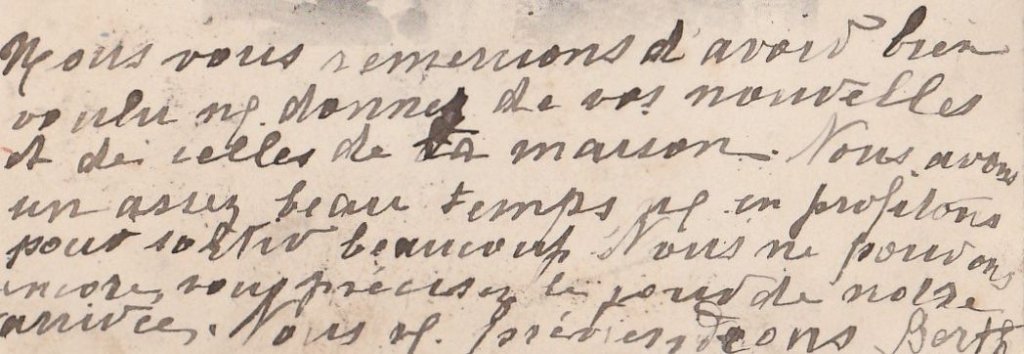 Nous vous remercions d'avoir bien
voulu n. donner de vos nouvelles
et de celles de la maison. Nous avons
un assez beau temps n. en profitons
pour sortir beaucoup. Nous ne pouvons
encore vous préciser le jour de notre
arrivée. Nous n. préviendrons Berth